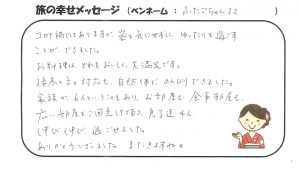 旅の幸せメッセージ (ペンネーム : ふたごちゃんママ )
コロナ禍ではありますが、密を気にせずに、ゆったりと過ごす
ことができました。
お料理は、どれもおいしく、大満足です。
の方の対応も、自然体で、のんびりできました。
家族が6人ということもあり、お部屋も、食事部屋も、
広い部屋をご用意して頂き、
のびのび過ごせました。
ありがとうございました。またきますね。